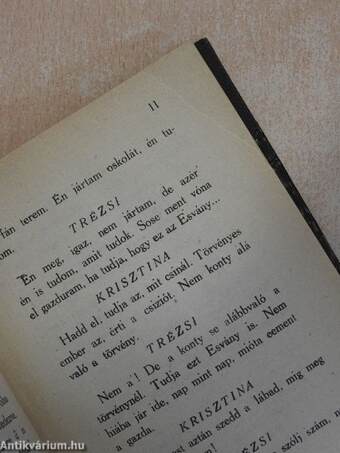 11
fán terem. Én jártam oskolát, én tu-
om.
TRÉZSI
Én meg, igaz, nem jártam, de azér
én is tudom, amit tudok. Sose ment vóna
el gazduram, ha tudja, hogy ez az Esvány...
KRISZTINA
Hadd el, tudja az, mit csinál. Törvényes
ember az, érti a csiziót. Nem konty alá
való a törvény.
TRÉZSI
Nem a! De a konty se alábbvaló a
törvénynél. Tudja ezt Esvány is. Nem
hiába jár ide, nap mint nap, mióta eement
a gazda.
KRISZTINA
aztán szedd a lábad, míg meg
TRÉZSI
szólj szám, n
antikvarium.hu